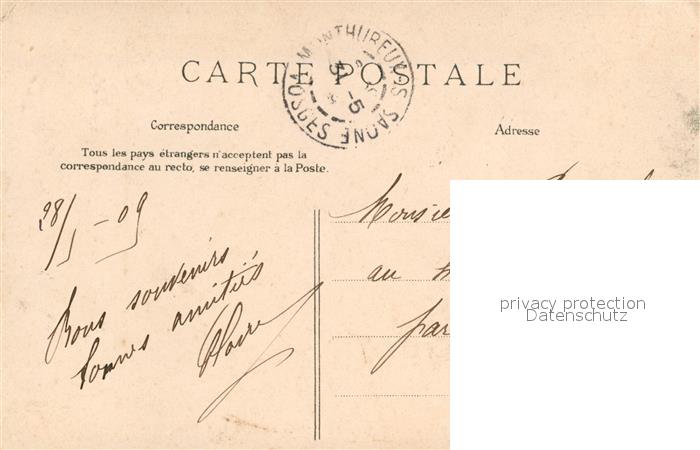 CARTE POSTALE
MONTHUREUX-S-SAONE VOSGES
Correspondance
Adresse
Tous les pays étrangers n'acceptent pas la
correspondance au recto, se renseigner à la Poste.
28/5-09
Bons souvenirs,
bonnes amitiés
Monsie
au
par
privacy protection
Datenschutz